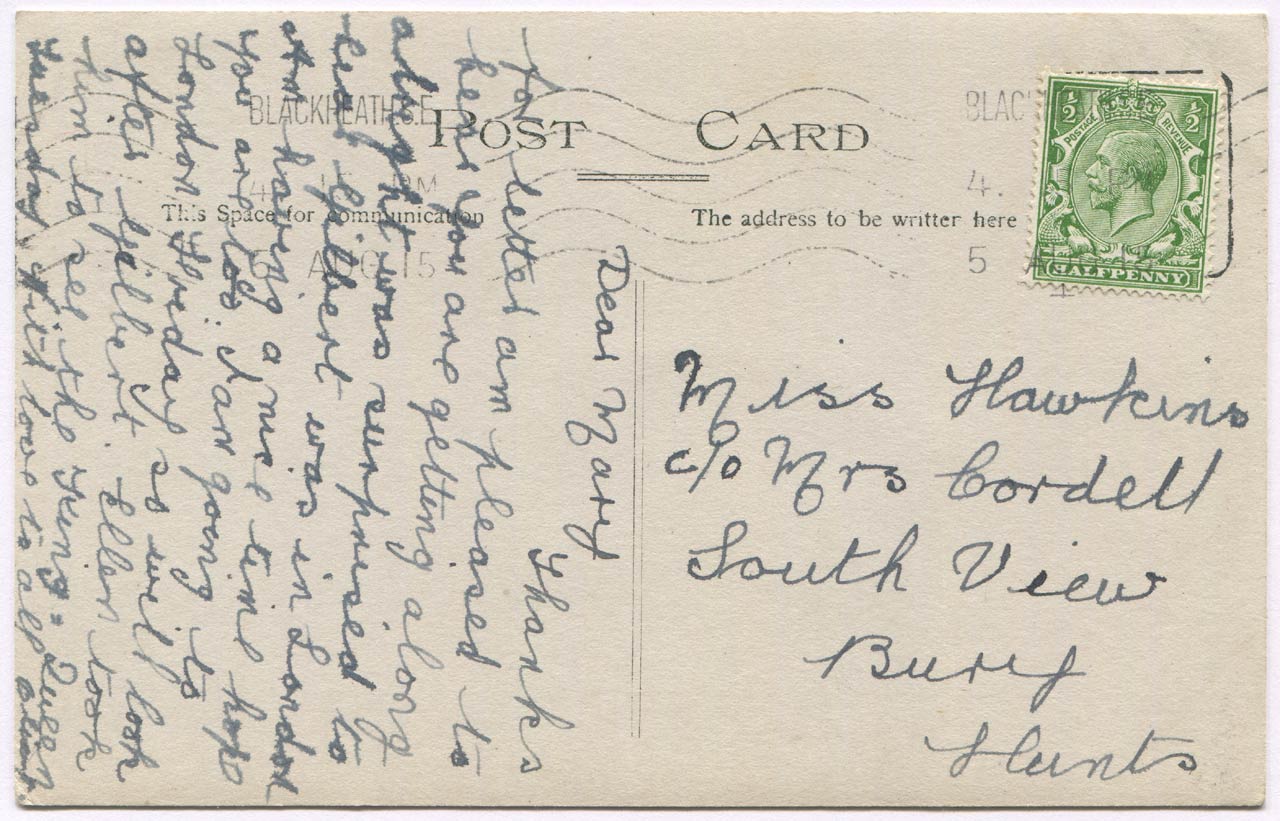 POST CARD
BLACKHEATH S.E.
4. 15 PM
5 AUG 15
This Space for communication
The address to be writter here
BLAC
4.
5 A
1
½ ½
POSTAGE REVENUE
HALFPENNY
Dear Mary
Thanks
for letter am pleased to
hear you are getting along
alright was surprised to
hear Gilbert was in London
Am having a nice time hope
you are too I am going to
London Friday so will look
after Gilbert Ellen took
him to see the King & Queen
Tuesday with love to all
Miss Hawkins
c/o Mrs Cordell
South View
Bury
Hunts